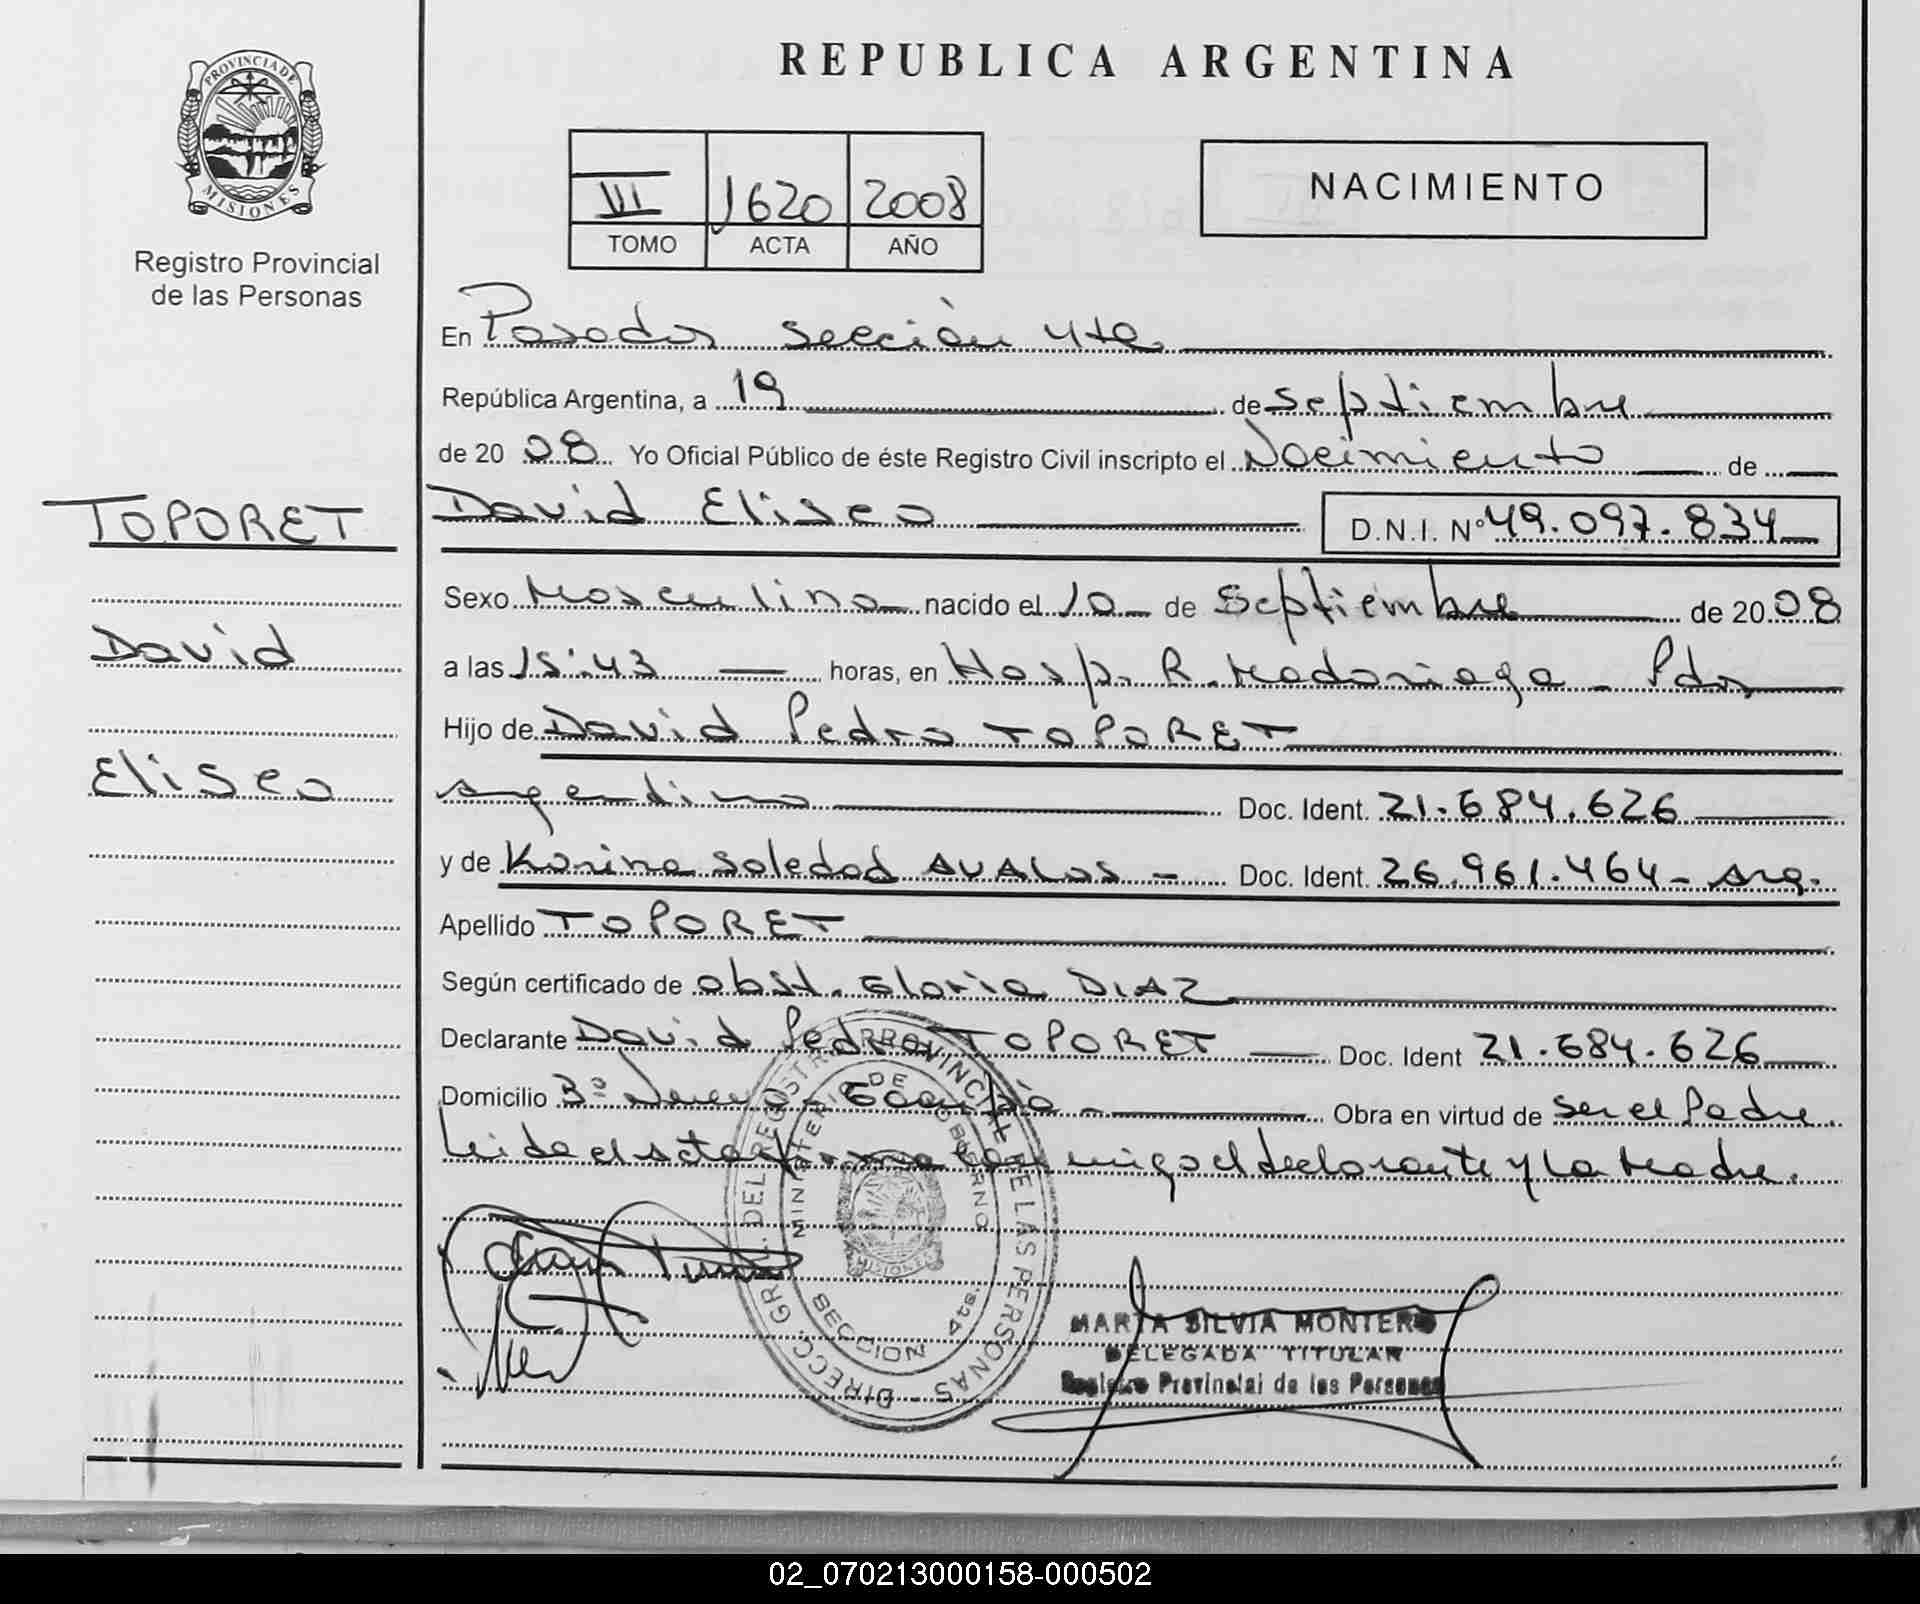 REPUBLICA ARGENTINA
PROVINCIA DE
MISIONES
Registro Provincial
de las Personas
VI 1620 2008
TOMO ACTA AÑO
NACIMIENTO
En Posadas sección 4ta
República Argentina, a 19 de septiembre
de 2008 Yo Oficial Público de éste Registro Civil inscripto el Nacimiento de
TOPORET
David Eliseo D.N.I. Nº 49.097.834
Sexo Masculino nacido el 10 de septiembre de 2008
David
a las 15:43 horas, en Hosp. R. Madariaga - Pdas
Hijo de David Pedro TOPORET
Eliseo
argentino Doc. Ident. 21.684.626
y de Karina Soledad AVALOS - Doc. Ident. 26.961.464 - Arg.
Apellido TOPORET
Según certificado de obst. Gloria DIAZ
Declarante David Pedro TOPORET Doc. Ident 21.684.626
Domicilio Obra en virtud de ser el Padre.
Leida el acta firma con migo el declarante y la Madre.
DIRECC. GRAL. DEL REGISTRO PROVINCIAL DE LAS PERSONAS
MINISTERIO DE GOBIERNO
MISIONES
SECCION 4ta.
MARTA SILVIA MONTERO
DELEGADA TITULAR
Registro Provincial de las Personas
02_070213000158-000502